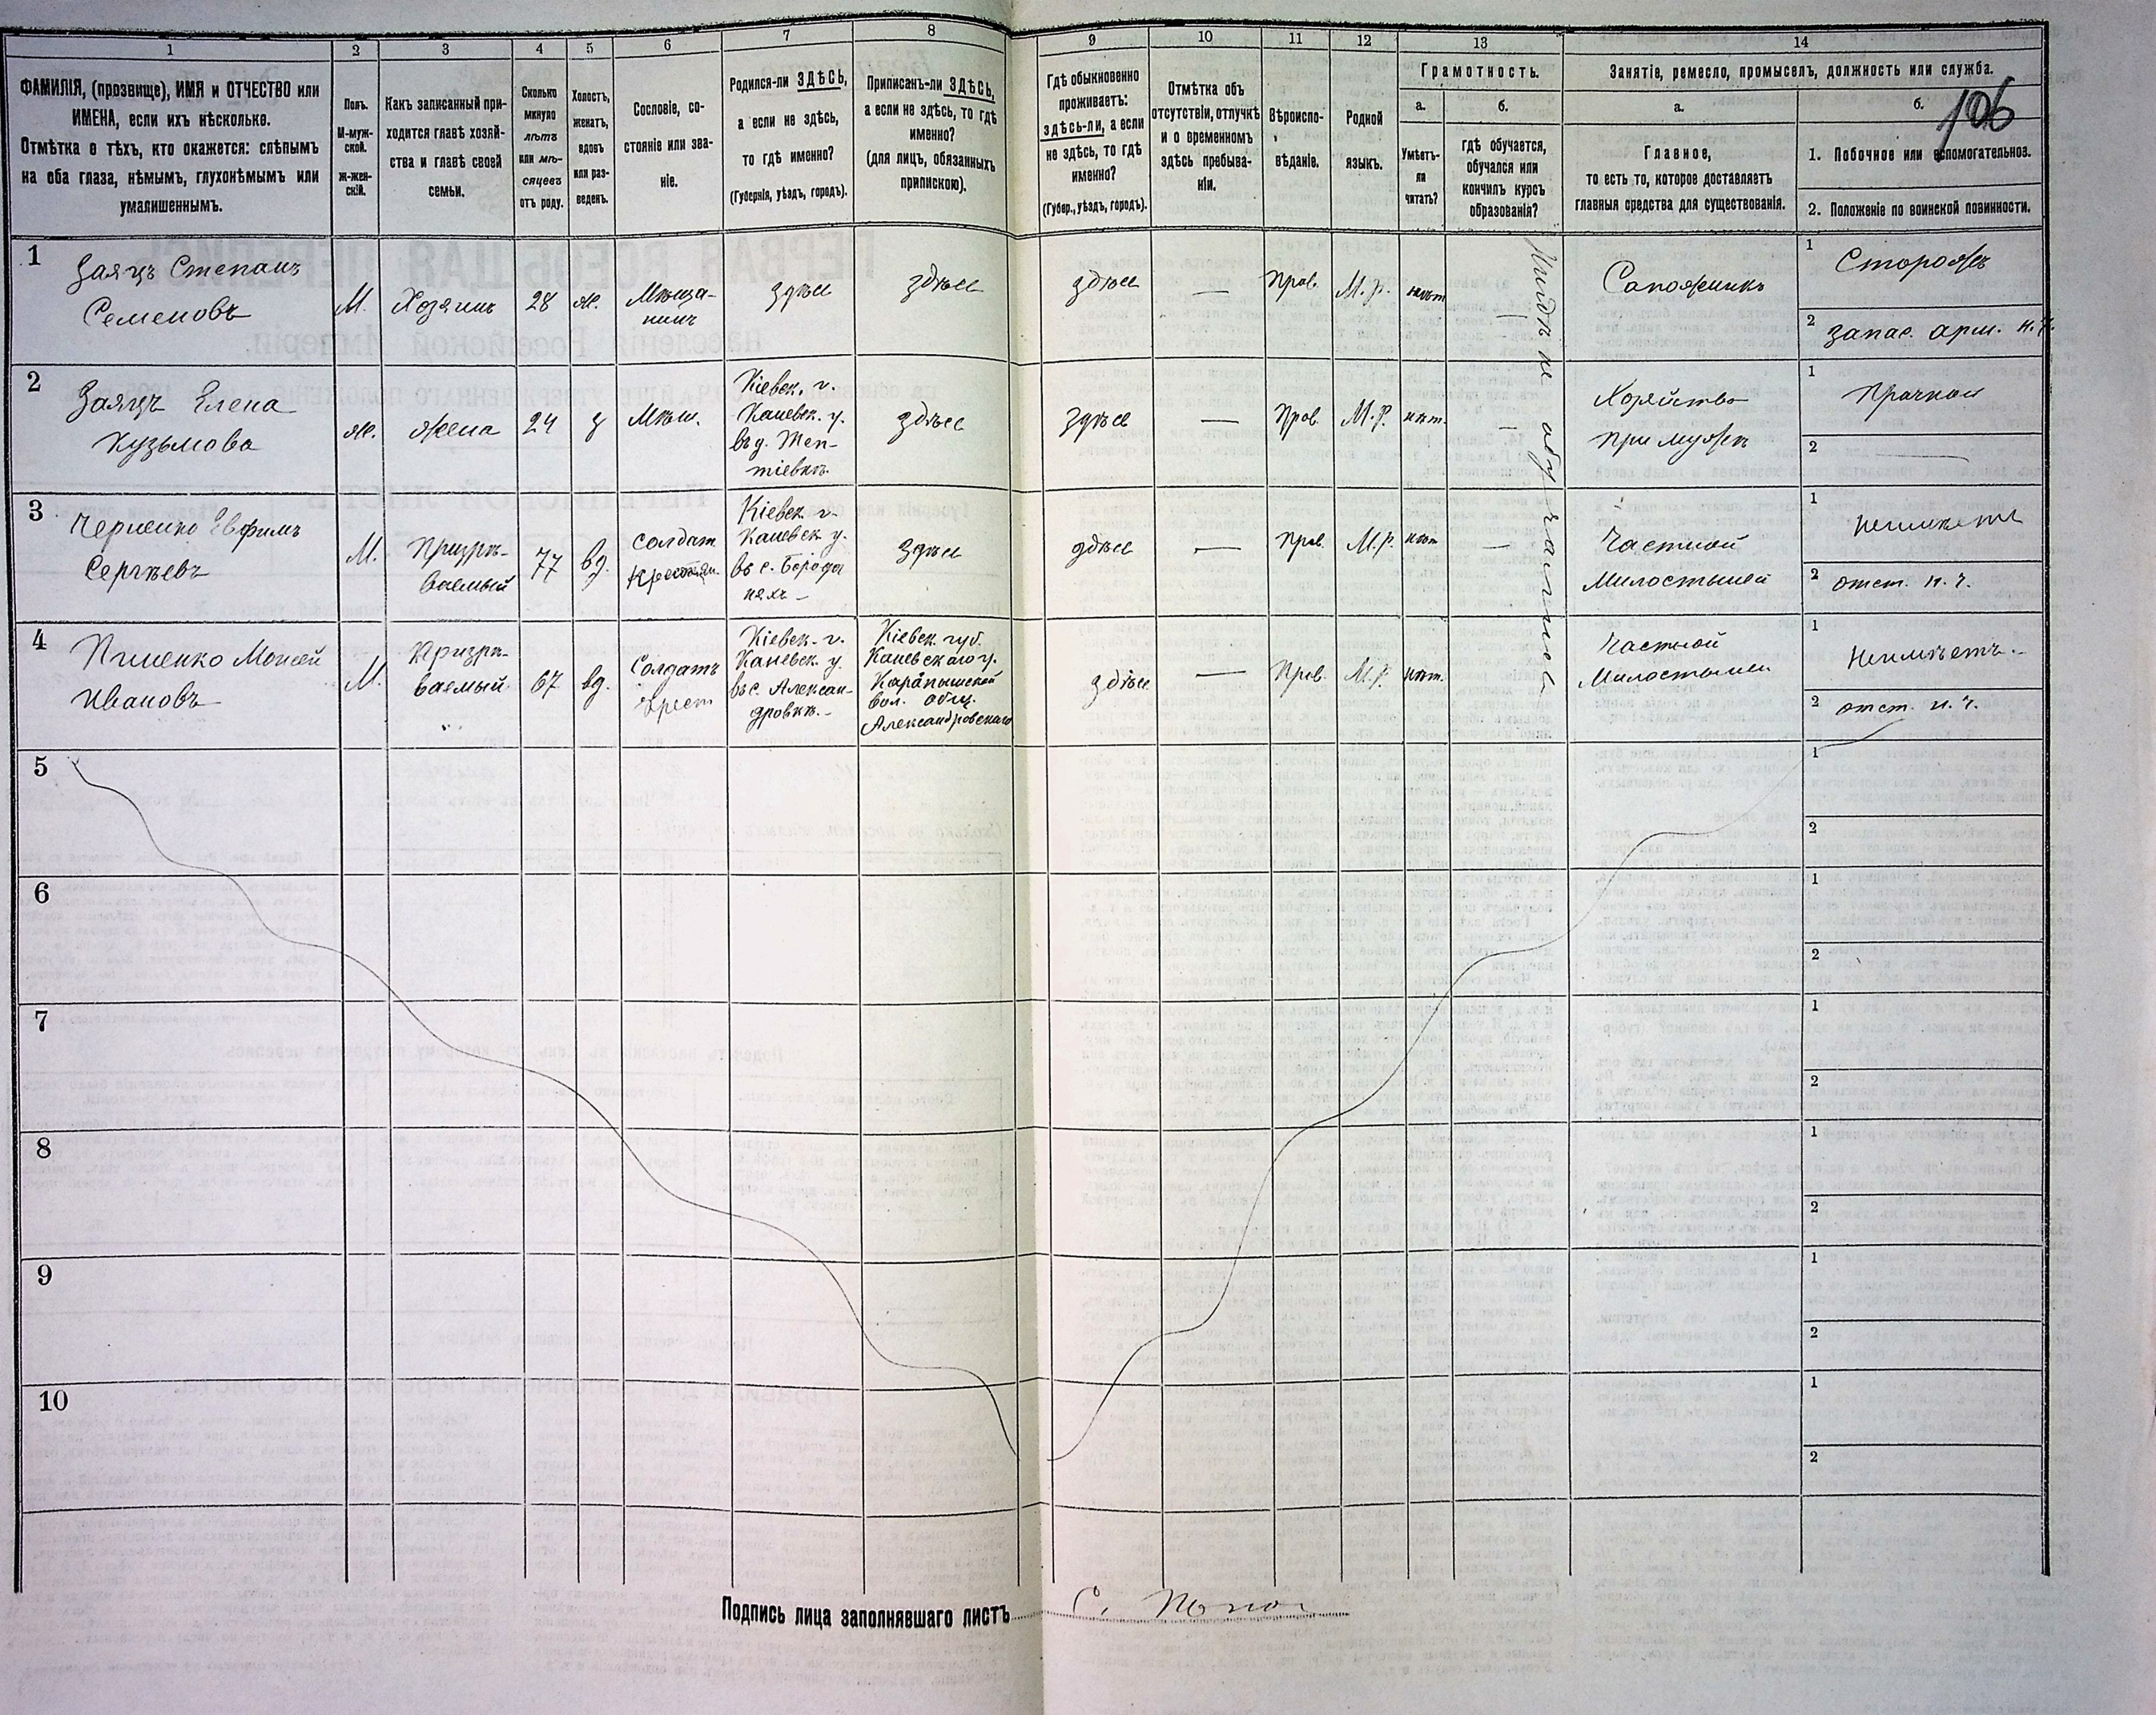 1 2 3 4 5 6 7 8 9 10 11 12 13 14
ФАМИЛІЯ, (прозвище), ИМЯ и ОТЧЕСТВО или
ИМЕНА, если ихъ нѣсколько.
Отмѣтка о тѣхъ, кто окажется: слѣпымъ
на оба глаза, нѣмымъ, глухонѣмымъ или
умалишеннымъ.
Полъ.
М-муж-
ской.
ж-жен-
скій.
Какъ записанный при-
ходится главѣ хозяй-
ства и главѣ своей
семьи.
Сколько
минуло
лѣтъ
или мѣ-
сяцевъ
отъ роду.
Холостъ,
женатъ,
вдовъ
или раз-
веденъ.
Сословіе, со-
стояніе или зва-
ніе.
Родился-ли ЗДѢСЬ,
а если не здѣсь,
то гдѣ именно?
(Губернія, уѣздъ, городъ).
Приписанъ-ли ЗДѢСЬ,
а если не здѣсь, то гдѣ
именно?
(для лицъ, обязанныхъ
припискою).
Гдѣ обыкновенно
проживаетъ:
здѣсь-ли, а если
не здѣсь, то гдѣ
именно?
(Губер., уѣздъ, городъ).
Отмѣтка объ
отсутствіи, отлучкѣ
и о временномъ
здѣсь пребыва-
ніи.
Вѣроиспо-
вѣданіе.
Родной
языкъ.
Грамотность.
а.
Умѣетъ-
ли
читать?
б.
гдѣ обучается,
обучался или
кончилъ курсъ
образованія?
Занятіе, ремесло, промыселъ, должность или служба.
а.
Главное,
то есть то, которое доставляетъ
главныя средства для существованія.
б.
106
1. Побочное или вспомогательное.
2. Положеніе по воинской повинности.
1
Заяцъ Степанъ
Семеновъ
М.
Хозяинъ
28
ж.
Мѣща-
нинъ
здѣсь
здѣсь
здѣсь
—
Прав.
М.Р.
нѣт
—
Сапожникъ
1 Сторожъ
2 запас. арм. н.ч.
2
Заяцъ Елена
Кузьмова
ж.
жена
24
з
Мѣщ.
Кіевск. г.
Каневск. у.
въ д.
здѣсь
здѣсь
—
Прав.
М.Р.
нѣт.
—
Хозяйство
при мужѣ
1 Прачкой
2
3
Черненко Евфимъ
Сергѣевъ
М.
Призрѣ-
ваемый
77
вд.
солдат
крестьян.
Кіевск. г.
Каневск. у.
въ с.
здѣсь
здѣсь
—
Прав.
М.Р.
нѣт
—
Частной
Милостыней
1 Неимѣетъ
2 отст. н.ч.
4
Моисей
Ивановъ
М.
Призрѣ-
ваемый
67
вд.
Солдатъ
крест
Кіевск. г.
Каневск. у.
въ с. Алексан-
дровкѣ.
Кіевск. губ.
Каневскаго у.
Карапышской
вол. общ.
Александровскаго
здѣсь
—
Прав.
М.Р.
нѣт.
Частной
Милостыней
1 Неимѣетъ.
2 отст. н.ч.
Нигдѣ не обучались
5
1
2
6
1
2
7
1
2
8
1
2
9
1
2
10
1
2
Подпись лица заполнявшаго листъ С.